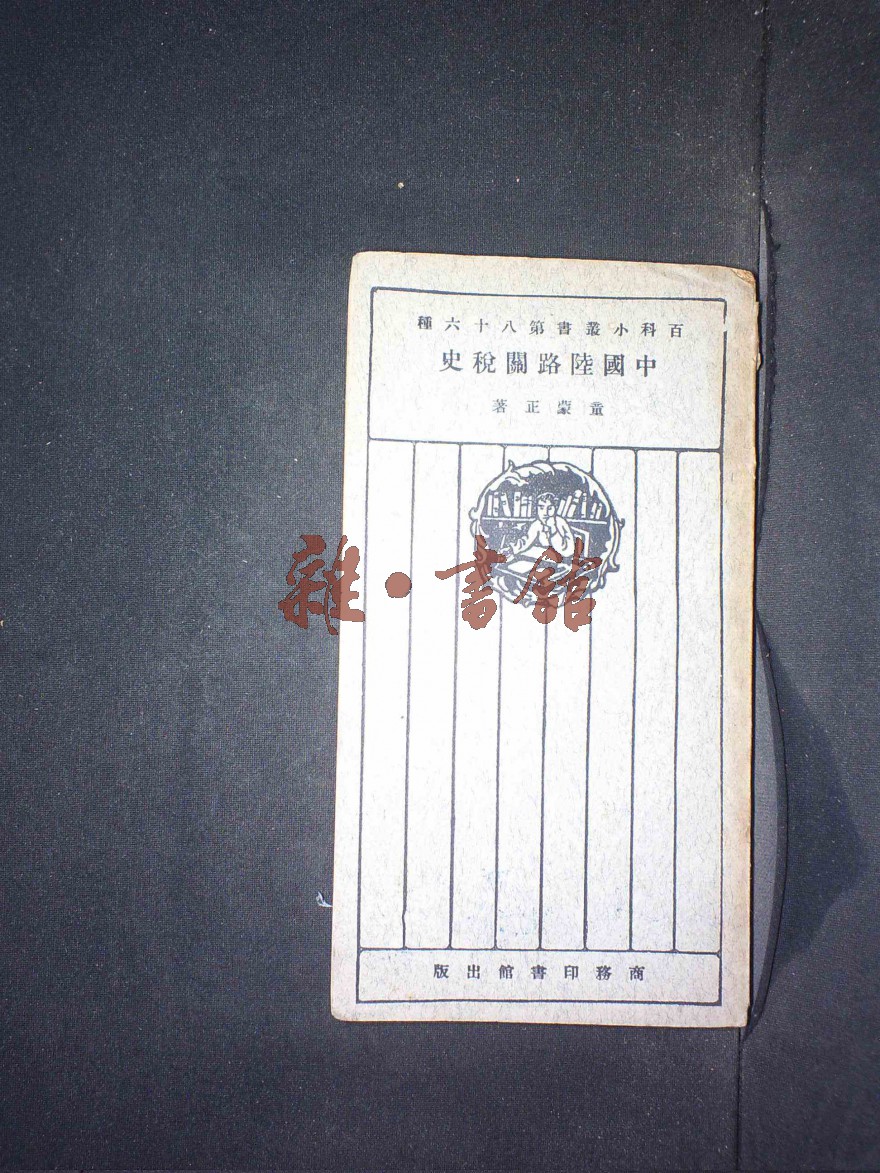 百科小叢書第八十六種
中國陸路關稅史
童蒙正著
雜·書館
商務印書館出版